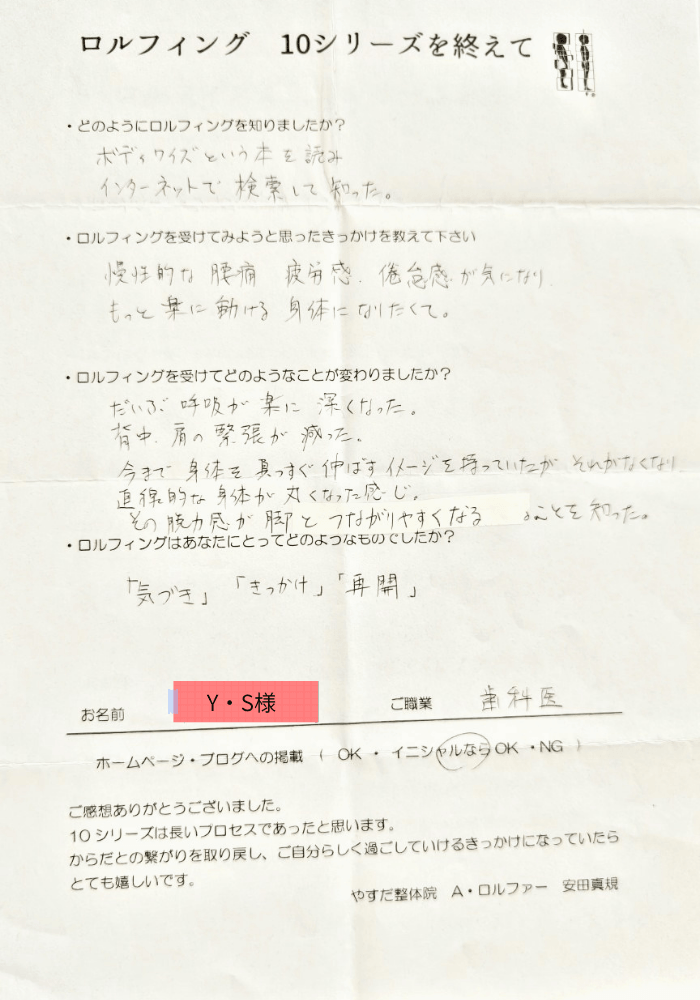 ロルフィング 10シリーズを終えて
・どのようにロルフィングを知りましたか？
ボディワイズという本を読み
インターネットで検索して知った。
・ロルフィングを受けてみようと思ったきっかけを教えて下さい
慢性的な腰痛 疲労感、倦怠感が気になり
もっと楽に動ける身体になりたくて。
・ロルフィングを受けてどのようなことが変わりましたか？
だいぶ呼吸が楽に深くなった。
背中、肩の緊張が減った。
今まで身体を真っすぐ伸ばすイメージを持っていたがそれがなくなり
直線的な身体が丸くなった感じ。
その脱力感が脚とつながりやすくなる ことを知った。
・ロルフィングはあなたにとってどのようなものでしたか？
「気づき」「きっかけ」「再開」
お名前 Y・S様 ご職業 歯科医
ホームページ・ブログへの掲載 （ OK ・ イニシャルならOK ・NG ）
ご感想ありがとうございました。
10シリーズは長いプロセスであったと思います。
からだとの繋がりを取り戻し、ご自分らしく過ごしていけるきっかけになっていたら
とても嬉しいです。
やすだ整体院 A・ロルファー 安田真規